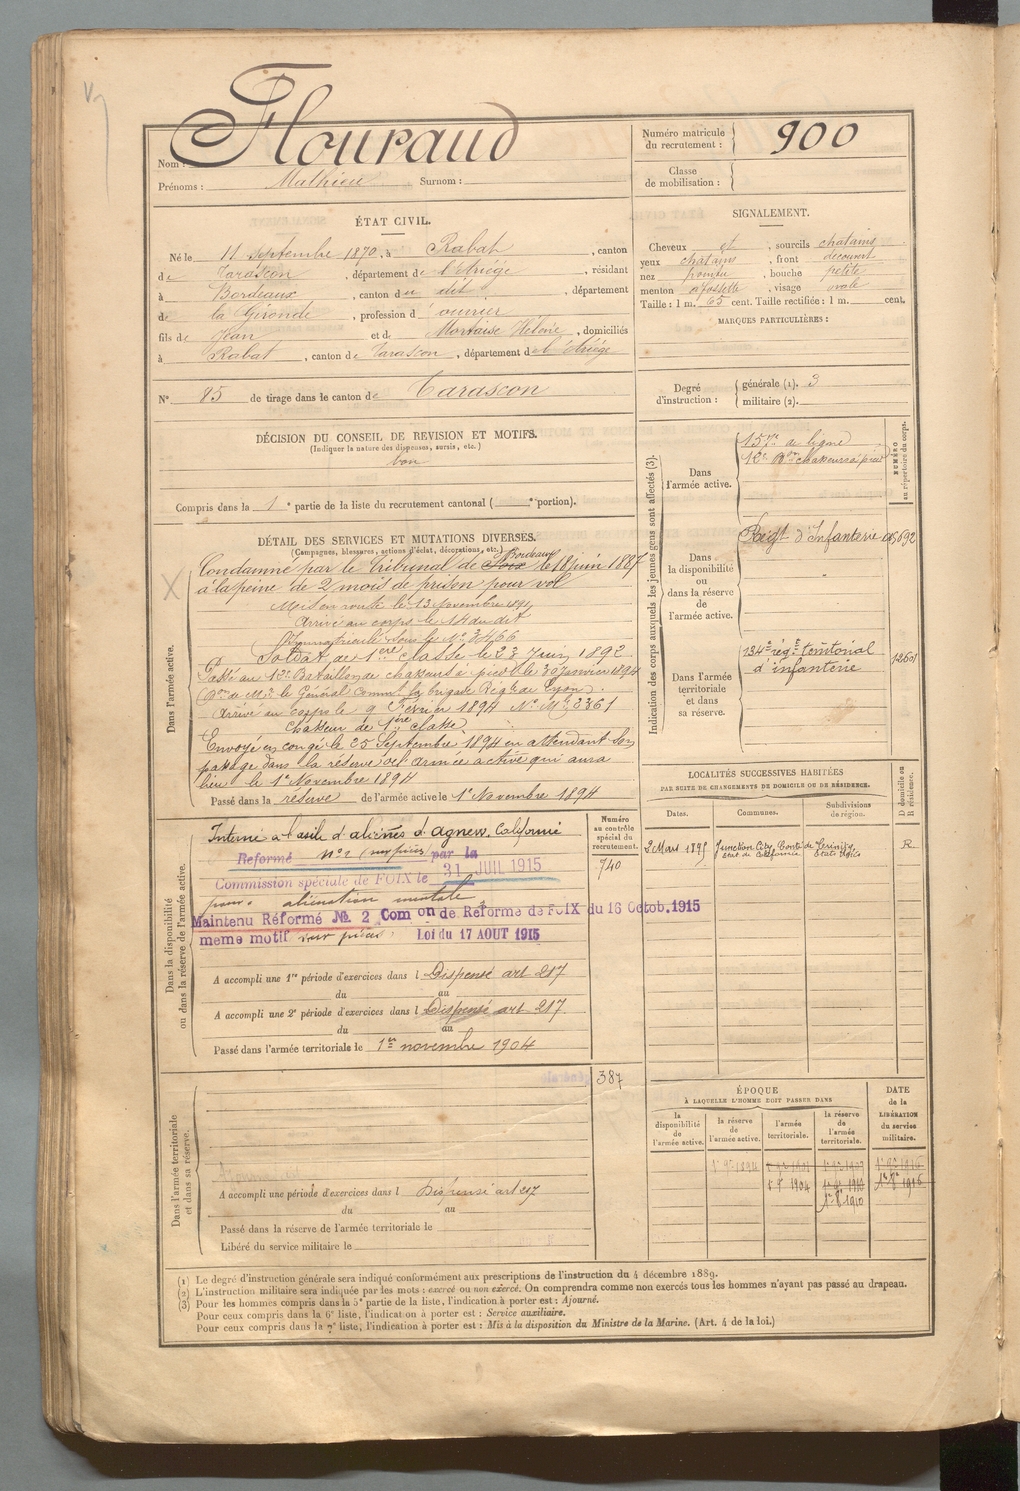 Nom : Flouraud
Prénoms : Mathieu Surnom :
Numéro matricule du recrutement : 900
Classe de mobilisation :
ÉTAT CIVIL.
Né le 11 septembre 1870, à Rabat, canton
de Tarascon, département de l'Ariège, résidant
à Bordeaux, canton du dit, département
de la Gironde, profession d'ouvrier
fils de Jean et de Mortaise Hélène, domiciliés
à Rabat, canton de Tarascon, département de l'Ariège
SIGNALEMENT.
Cheveux et, sourcils chatains
yeux chatains, front découvert
nez pointu, bouche petite
menton à fossette, visage ovale
Taille : 1 m. 65 cent. Taille rectifiée : 1 m. cent.
MARQUES PARTICULIÈRES :
N° 85 de tirage dans le canton de Tarascon
Degré d'instruction : générale (1). 3
militaire (2).
DÉCISION DU CONSEIL DE REVISION ET MOTIFS.
(Indiquer la nature des dispenses, sursis, etc.)
bon
Compris dans la 1e partie de la liste du recrutement cantonal ( e portion).
DÉTAIL DES SERVICES ET MUTATIONS DIVERSES.
(Campagnes, blessures, actions d'éclat, décorations, etc.)
Dans l'armée active.
Condamné par le Tribunal de Foix Bordeaux le 18 juin 1887
à la peine de 2 mois de prison pour vol
Mis en route le 13 Novembre 1891
Arrivé au corps le 14 du dit
Immatriculé sous le N° 3466
Soldat de 1ère classe le 23 Juin 1892
Passé au 12e Bataillon de chasseurs à pied le 30 Janvier 1894
Arrivé au corps le 9 Février 1894 N° Mle 3361
Chasseur de 1ère classe
Envoyé en congé le 25 Septembre 1894 en attendant son
passage dans la réserve de l'armée active qui aura
lieu le 1er Novembre 1894
Passé dans la réserve de l'armée active le 1er Novembre 1894
Indication des corps auxquels les jeunes gens sont affectés (3).
NUMÉRO au répertoire du corps.
Dans l'armée active.
157e de ligne
12e Bon chasseurs à pied
Dans la disponibilité ou dans la réserve de l'armée active.
Régt d'Infanterie
Dans l'armée territoriale et dans sa réserve.
134e régt territorial
d'infanterie
LOCALITÉS SUCCESSIVES HABITÉES
PAR SUITE DE CHANGEMENTS DE DOMICILE OU DE RÉSIDENCE.
Dates. Communes. Subdivisions de région. D domicile ou R résidence.
Junction City
R.
Dans la disponibilité ou dans la réserve de l'armée active.
Numéro au contrôle spécial du recrutement.
740
Interné à l'asile d'aliénés d'Agnew, Californie
Reformé n°2 (sur pièces) par la
Commission spéciale de FOIX le 31 JUIL 1915
pour aliénation mentale
Maintenu Réformé No 2 Com on de Réforme de FOIX du 16 Octob. 1915
meme motif sur pièces Loi du 17 AOUT 1915
A accompli une 1re période d'exercices dans l Dispensé art 217
du au
A accompli une 2e période d'exercices dans l Dispensé art 217
du au
Passé dans l'armée territoriale le 1er novembre 1904
Dans l'armée territoriale et dans sa réserve.
387
A accompli une période d'exercices dans l Dispensé art 217
du au
Passé dans la réserve de l'armée territoriale le
Libéré du service militaire le
ÉPOQUE
À LAQUELLE L'HOMME DOIT PASSER DANS
la disponibilité de l'armée active. la réserve de l'armée active. l'armée territoriale. la réserve de l'armée territoriale.
DATE de la LIBÉRATION du service militaire.
(1) Le degré d'instruction générale sera indiqué conformément aux prescriptions de l'instruction du 4 décembre 1889.
(2) L'instruction militaire sera indiquée par les mots : exercé ou non exercé. On comprendra comme non exercés tous les hommes n'ayant pas passé au drapeau.
(3) Pour les hommes compris dans la 5e partie de la liste, l'indication à porter est : Ajourné.
Pour ceux compris dans la 6e liste, l'indication à porter est : Service auxiliaire.
Pour ceux compris dans la 7e liste, l'indication à porter est : Mis à la disposition du Ministre de la Marine. (Art. 4 de la loi.)